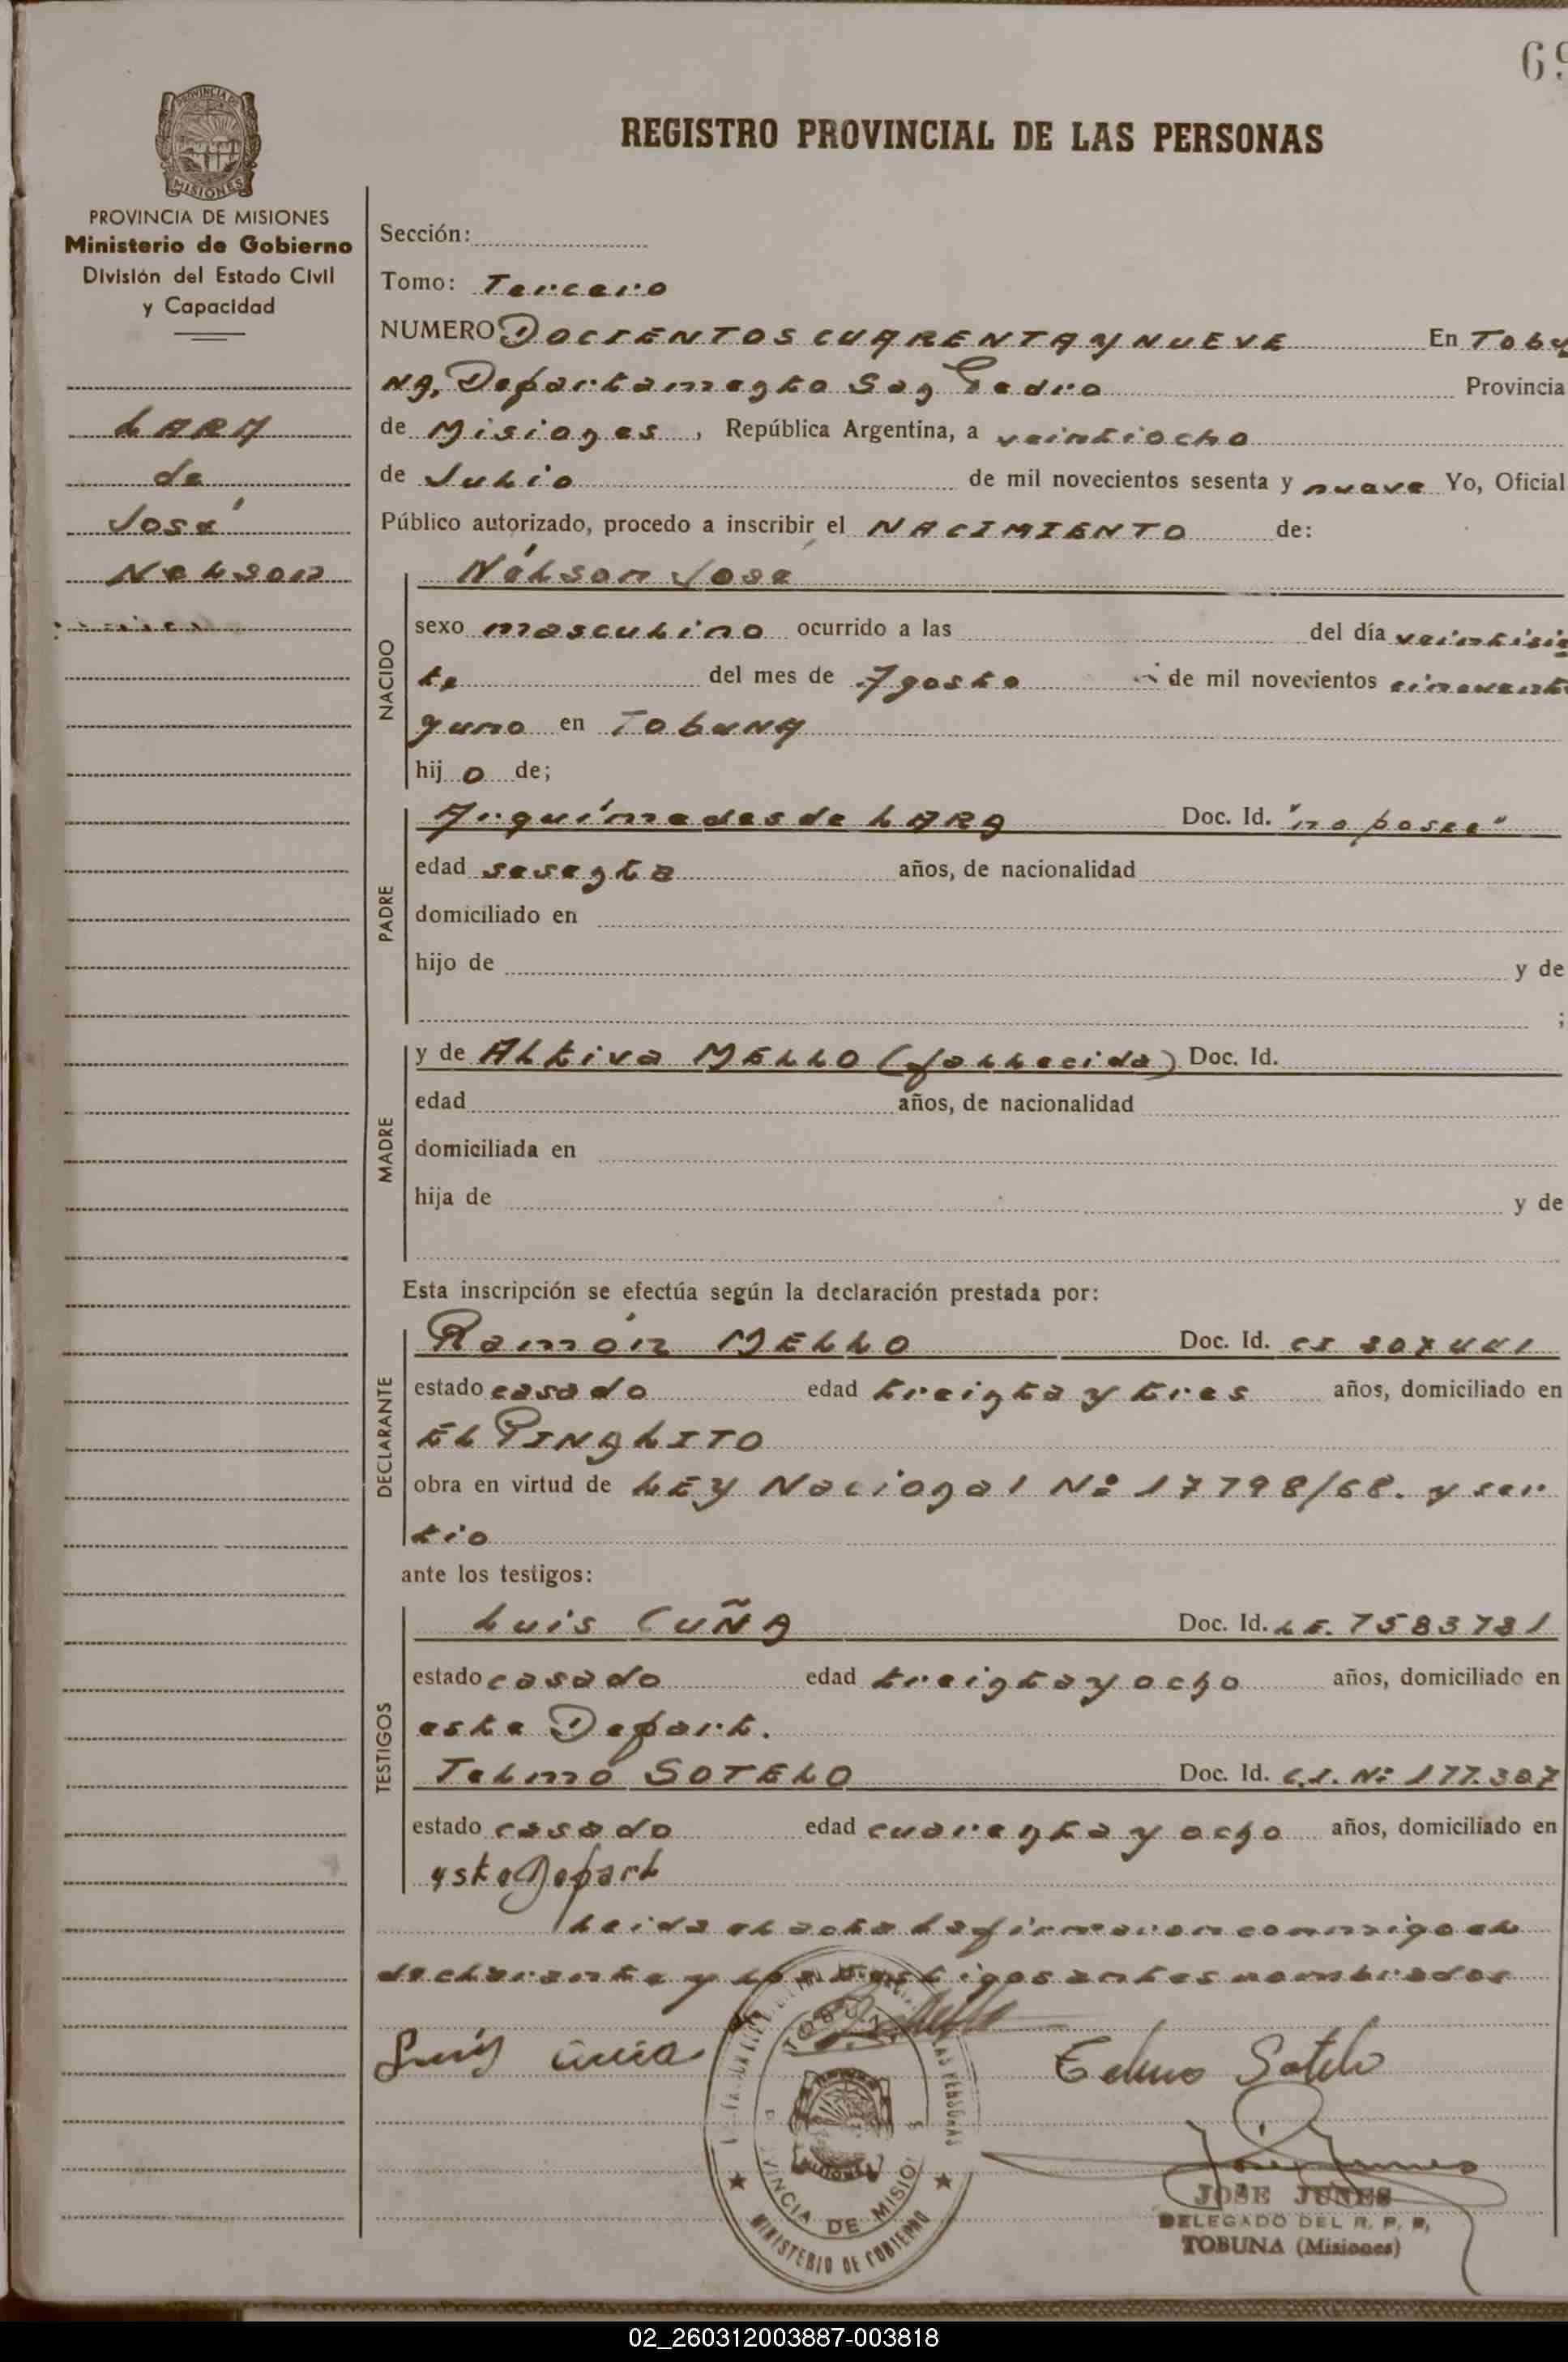 69
PROVINCIA DE
MISIONES
REGISTRO PROVINCIAL DE LAS PERSONAS
PROVINCIA DE MISIONES
Ministerio de Gobierno
División del Estado Civil
y Capacidad
LARA
de
José
Nelson
Sección:
Tomo: Tercero
NUMERO DOCIENTOS CUARENTA Y NUEVE En Tobu
NA, Departamento San Pedro Provincia
de Misiones, República Argentina, a veintiocho
de Julio de mil novecientos sesenta y nueve Yo, Oficial
Público autorizado, procedo a inscribir el NACIMIENTO de:
NACIDO
Nélson José
sexo masculino ocurrido a las del día veintisie
te del mes de Agosto de mil novecientos cincuenta
yuno en TobuNA
hij o de;
PADRE
Arquímedes de LARA Doc. Id. "no posee"
edad sesenta años, de nacionalidad
domiciliado en
hijo de y de
;
MADRE
y de Altiva MELLO (fallecida) Doc. Id.
edad años, de nacionalidad
domiciliada en
hija de y de
Esta inscripción se efectúa según la declaración prestada por:
DECLARANTE
Ramón MELLO Doc. Id. CI
estado casado edad treinta y tres años, domiciliado en
EL PINALITO
obra en virtud de LEY Nacional Nº 17798/68. y ser
tio
ante los testigos:
TESTIGOS
Luis CUÑA Doc. Id. LE. 7583781
estado casado edad treinta y ocho años, domiciliado en
este Depart.
Telmo SOTELO Doc. Id. C.I. Nº 177.307
estado casado edad cuarenta y ocho años, domiciliado en
este Depart
Leida el acta la firmaron conmigo el
declarante y los testigos antes nombrados
Luis Cuña
Telmo Sotelo
TOBUNA
LAS PERSONAS
MISIONES
PROVINCIA DE MISIONES
MINISTERIO DE GOBIERNO
José Junes
JOSE JUNES
DELEGADO DEL R. P. P.
TOBUNA (Misiones)
02_260312003887-003818